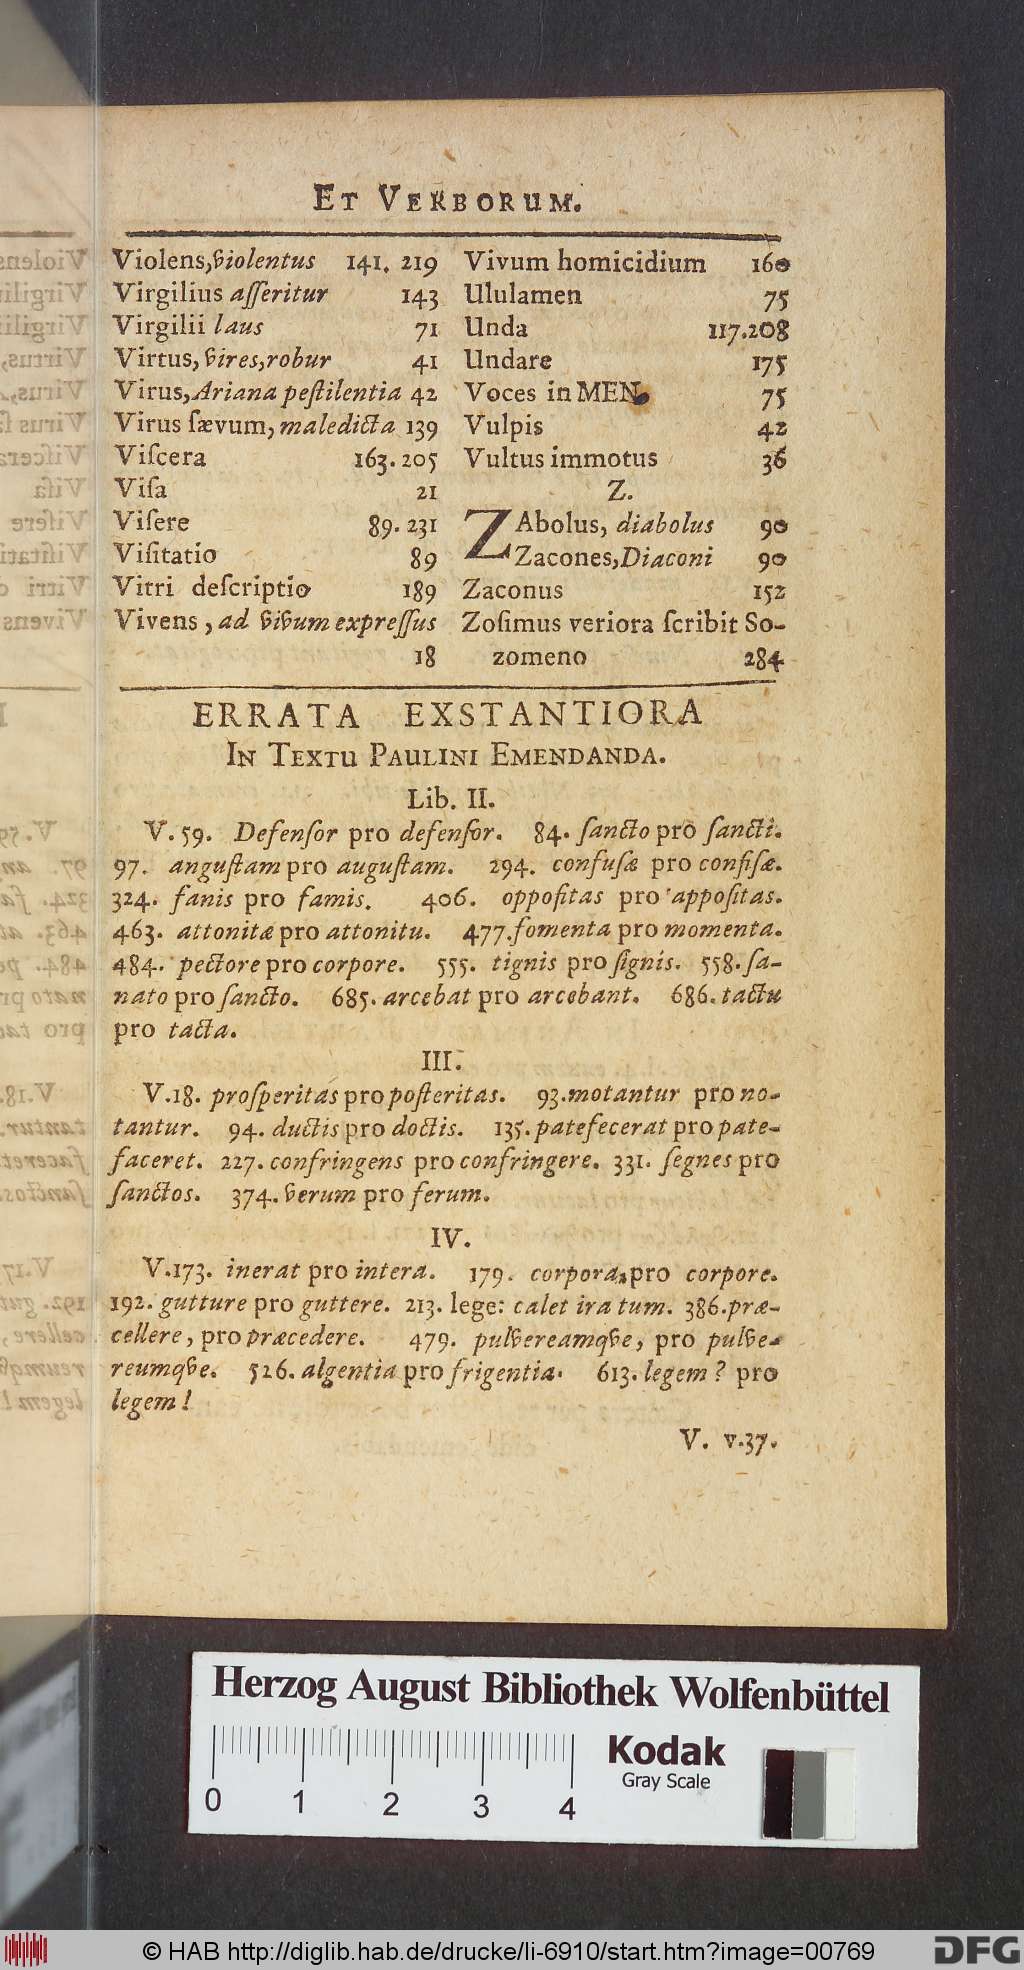 ET VERBORUM.
Violens, violentus 141. 219
Virgilius asseritur 143
Virgilii laus 71
Virtus, vires, robur 41
Virus, Ariana pestilentia 42
Virus sævum, maledicta 139
Viscera 163. 205
Visa 21
Visere 89. 231
Visitatio 89
Vitri descriptio 189
Vivens, ad vivum expressus
18
Vivum homicidium 160
Ululamen 75
Unda 117. 208
Undare 175
Voces in MEN. 75
Vulpis 42
Vultus immotus 36
Z.
ZAbolus, diabolus 90
Zacones, Diaconi 90
Zaconus 152
Zosimus veriora scribit So-
zomeno 284
ERRATA EXSTANTIORA
IN TEXTU PAULINI EMENDANDA.
Lib. II.
V. 59. Defensor pro defensor. 84. sancto pro sancti.
97. angustam pro augustam. 294. confusæ pro confisæ.
324. fanis pro famis. 406. oppositas pro appositas.
463. attonitæ pro attonitu. 477. fomenta pro momenta.
484. pectore pro corpore. 555. tignis pro signis. 558. sa-
nato pro sancto. 685. arcebat pro arcebant. 686. tactu
pro tacta.
III.
V. 18. prosperitas pro posteritas. 93. motantur pro no-
tantur. 94. ductis pro doctis. 135. patefecerat pro pate-
faceret. 227. confringens pro confringere. 331. segnes pro
sanctos. 374. verum pro ferum.
IV.
V. 173. inerat pro intera. 179. corpora, pro corpore.
192. gutture pro guttere. 213. lege: calet ira tum. 386. præ-
cellere, pro præcedere. 479. pulvereamqve, pro pulve-
reumqve. 526. algentia pro frigentia. 613. legem? pro
legem!
V. v. 37.
Herzog August Bibliothek Wolfenbüttel
Kodak
Gray Scale
0 1 2 3 4
© HAB http://diglib.hab.de/drucke/li-6910/start.htm?image=00769
DFG